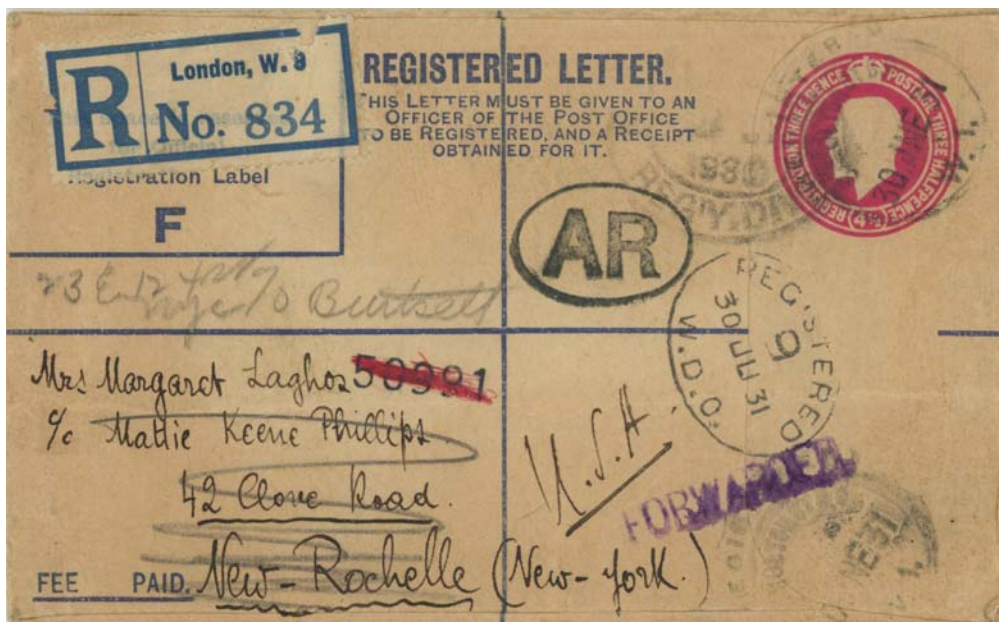 R
London, W. 9
No. 834
Registration Label
F
REGISTERED LETTER.
THIS LETTER MUST BE GIVEN TO AN
OFFICER OF THE POST OFFICE
TO BE REGISTERED, AND A RECEIPT
OBTAINED FOR IT.
POSTAGE THREE HALFPENCE
REGISTRATION THREE PENCE
4½
AR
23 E. 12
Burtsell
REGISTERED
9
30 JU 31
W.D.O.
Mrs Margaret Laghos 50391
c/o Mattie Keene Phillips
42 Clove Road.
New-Rochelle (New-York.)
U.S.A.
FORWARDED.
FEE PAID.